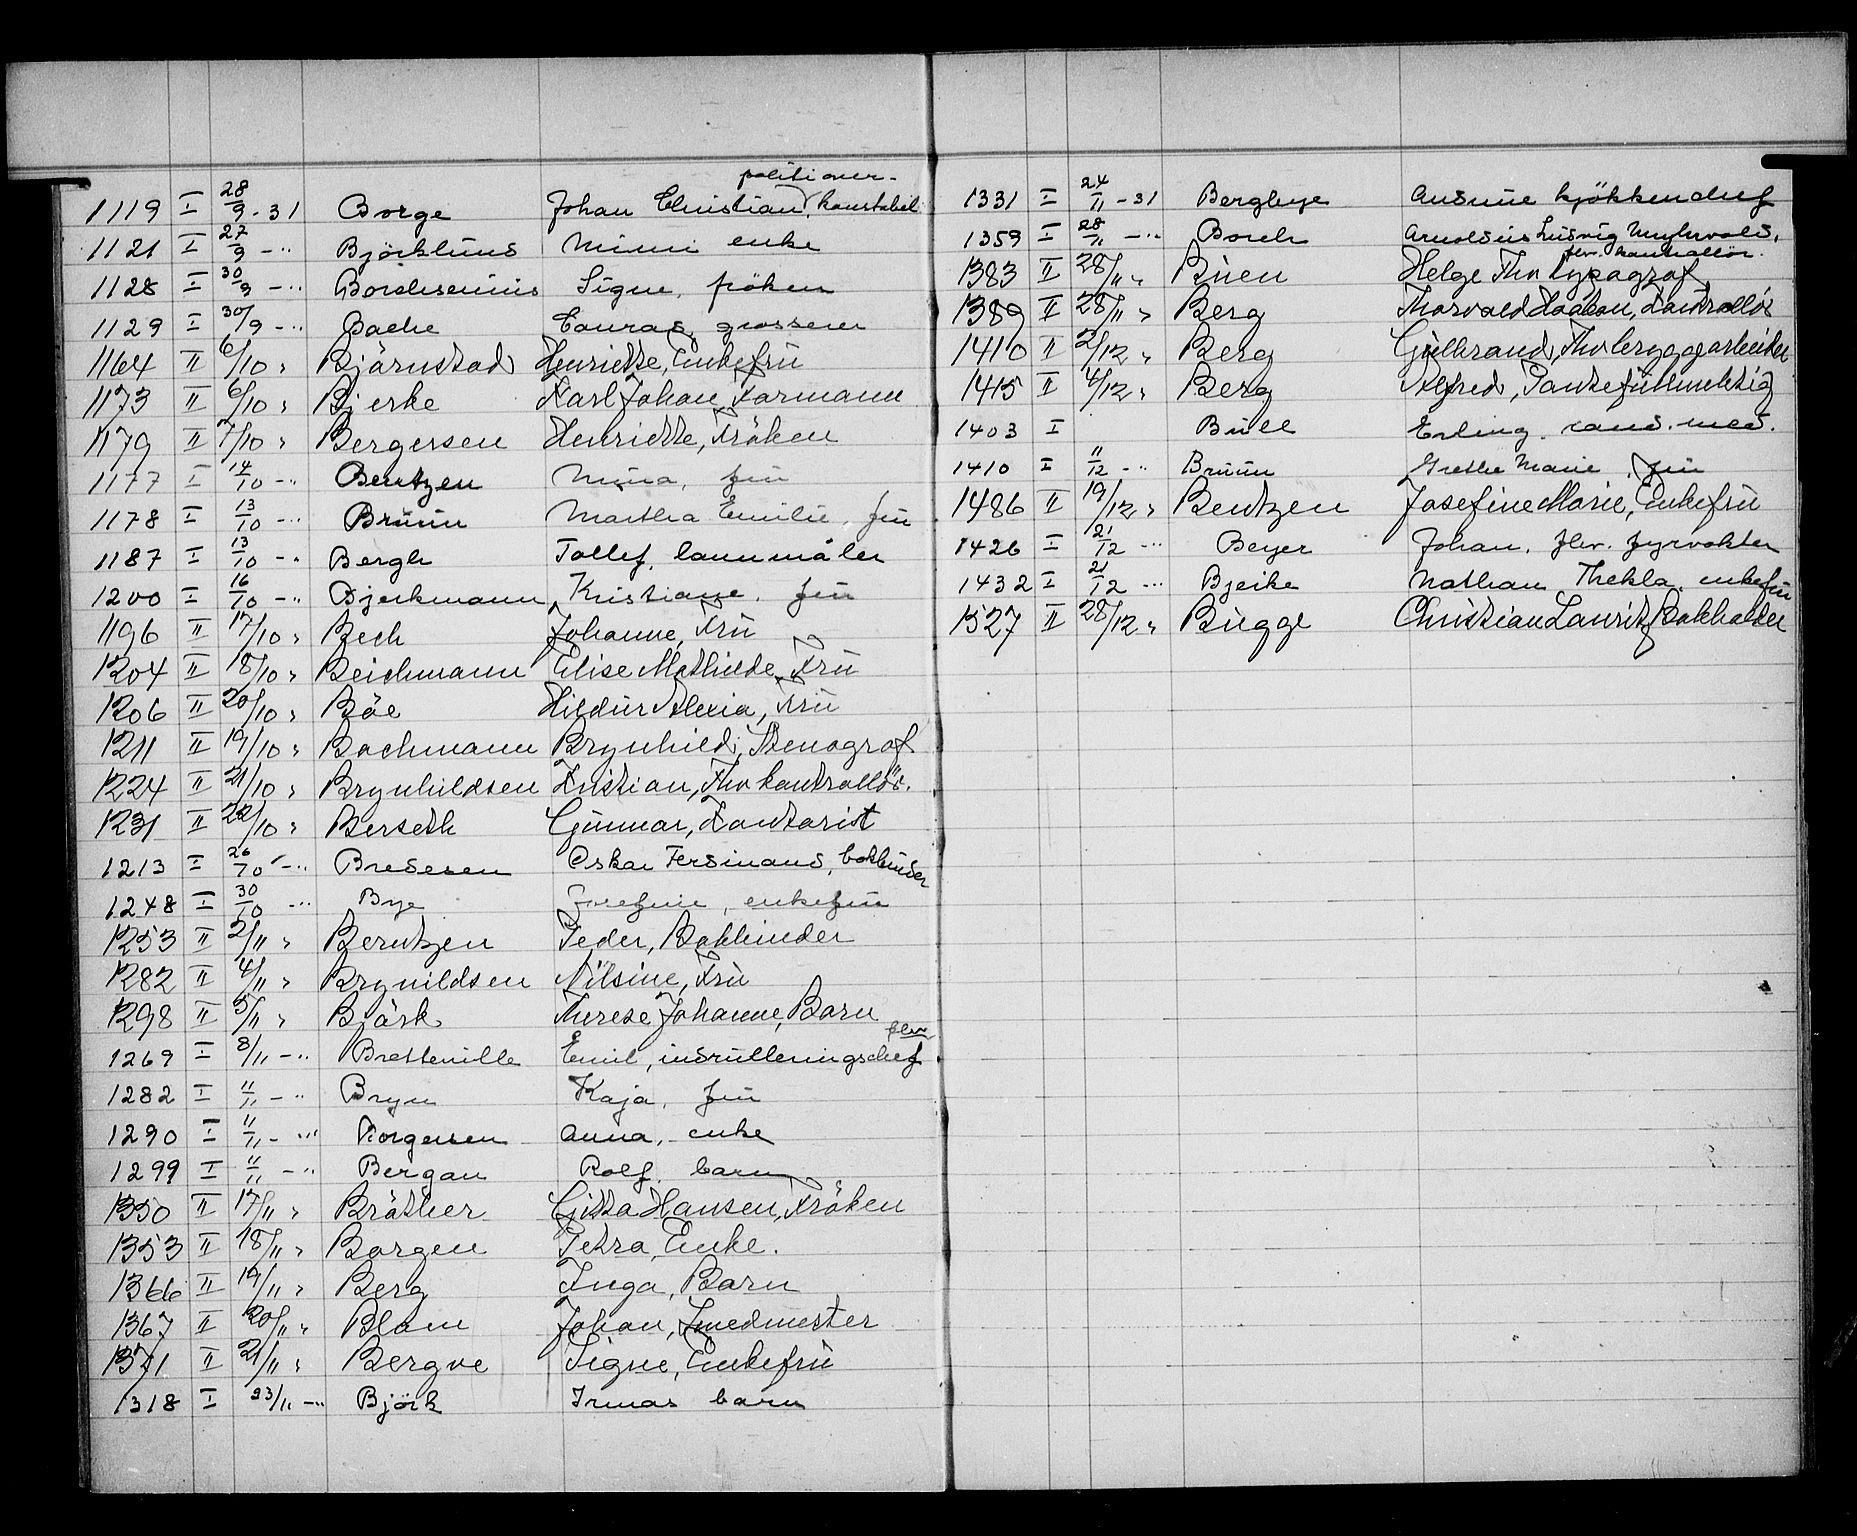 1119 I 28/9-31 Borge Johan Christian, politiover-konstabel
1121 I 27/9 -" Björklund Minni enke
1128 I 30/9 -" Borchsenius Signe, fröken
1129 I 30/9 -" Bache Conrad, grosserer
1164 II 6/10 " Björnstad Henriette, Enkefru
1173 II 6/10 " Bjerke Karl Johan, Formann
1179 II 7/10 " Bergersen Henriette, Fröken
1177 I 14/10 -" Bentzen Mina, fru
1178 I 13/10 -" Bruun Martha Emilie, fru
1187 I 13/10 -" Bergh Tollef, lannmåler
1200 I 16/10 -" Bjerkmann Kristiane, fru
1196 II 17/10 " Bech Johanne, Fru
1204 II 18/10 " Beichmann Elise Mathilde, Fru
1206 II 20/10 " Böe Hildur Alexia, Fru
1211 II 19/10 " Bachmann Brynhild, Stenograf
1224 II 21/10 " Brynhildsen Kristian, Fhv kontrollör.
1231 II 22/10 " Berseth Gunnar, Kontorist
1213 I 26/10 -" Bredesen Oskar Ferdinand, bokbinder
1248 I 30/10 -" Bye Josefine, enkefru
1253 II 2/11 " Berntzen Peder, Bokbinder
1282 II 4/11 " Brynildsen Nilsine, Fru
1298 II 5/11 " Björk Therese Johanne, Barn
1269 I 8/11 -" Bretteville Emil, fhv. innrulleringschef
1282 I 11/11 -" Bryn Kaja, fru
1290 I 11/11 -" Borgersen Anna, enke
1299 I 11/11 -" Bergan Rolf, barn
1350 II 17/11 " Bräther Gitta Hansen, Fröken
1353 II 18/11 " Borgen Petra, Enke.
1366 II 19/11 " Berg Inga, Barn
1367 II 20/11 " Blom Johan, Smedmester
1371 II 21/11 " Bergve Signe, Enkefru
1318 I 23/11 -" Björk Irmas barn
1331 I 24/11 -31 Bergbye kjökkenchef
1359 I 28/11 -" Borch Arnoldus Ludvig fhv. kontrollör.
1383 II 28/11 " Buen Helge Fhv typograf
1389 II 28/11 " Berg Thorvald Kontrollör
1410 II 2/12 " Berg Gulbrand, Fhv bryggearbeider
1415 II 4/12 " Berg Alfred, Pantefullmektig
1403 I Bull Erling, cand. med.
1410 I 11/12 -" Bruun Grethe Marie, fru
1486 II 19/12 " Bentzen Josefine Marie, Enkefru
1426 I 21/12 -" Beyer Johan, fhv. fyrvokter
1432 I 21/12 -" Bjerke Nathan Thekla, enkefru
1527 II 28/12 " Bugge Christian Lauritz, Bokholder